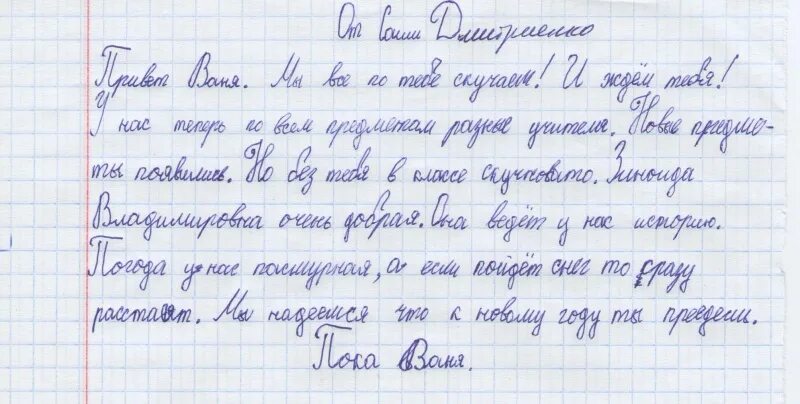 От Саши Дмитриенко
Привет Ваня. Мы все по тебе скучаем! И ждём тебя!
У нас теперь по всем предметам разные учителя. Новые предме-
ты появились. Но без тебя в классе скучновато. Зиноида
Владимировна очень добрая. Она ведёт у нас историю.
Погода у нас пасмурная, а если пойдёт снег то сразу
расстает. Мы надеемся что к новому году ты преедеш.
Пока Ваня.